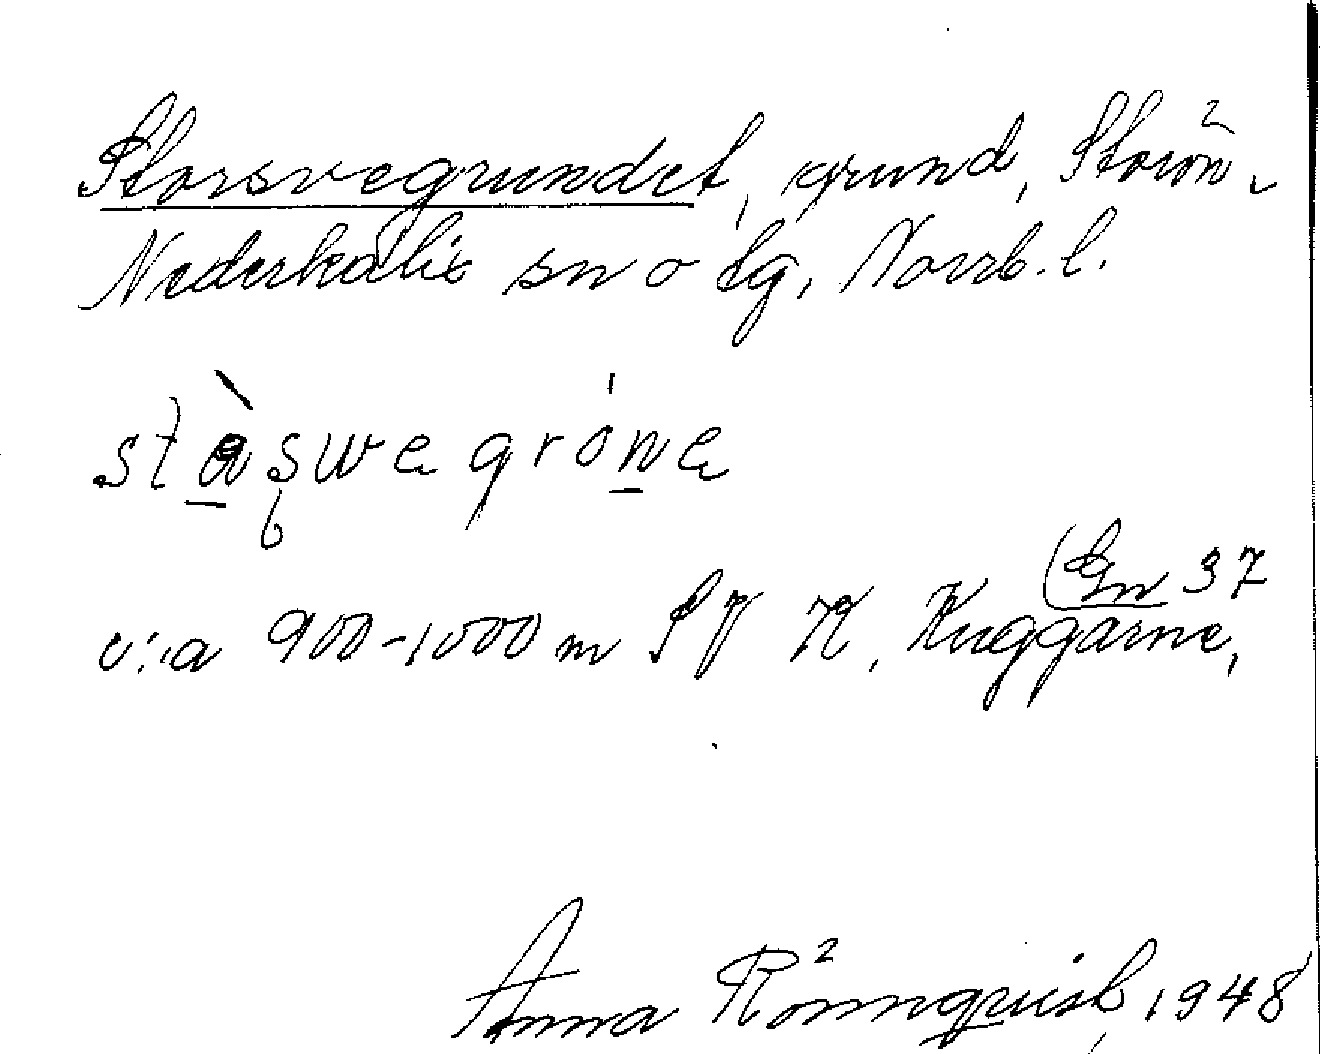 Storsvegrundet, grund, Storön,
Nederkalix sn o lg, Norrb. l.
c:a 900-1000 m SV K. Kuggarne,
(Gn 37
Anna Rönnquist, 1948